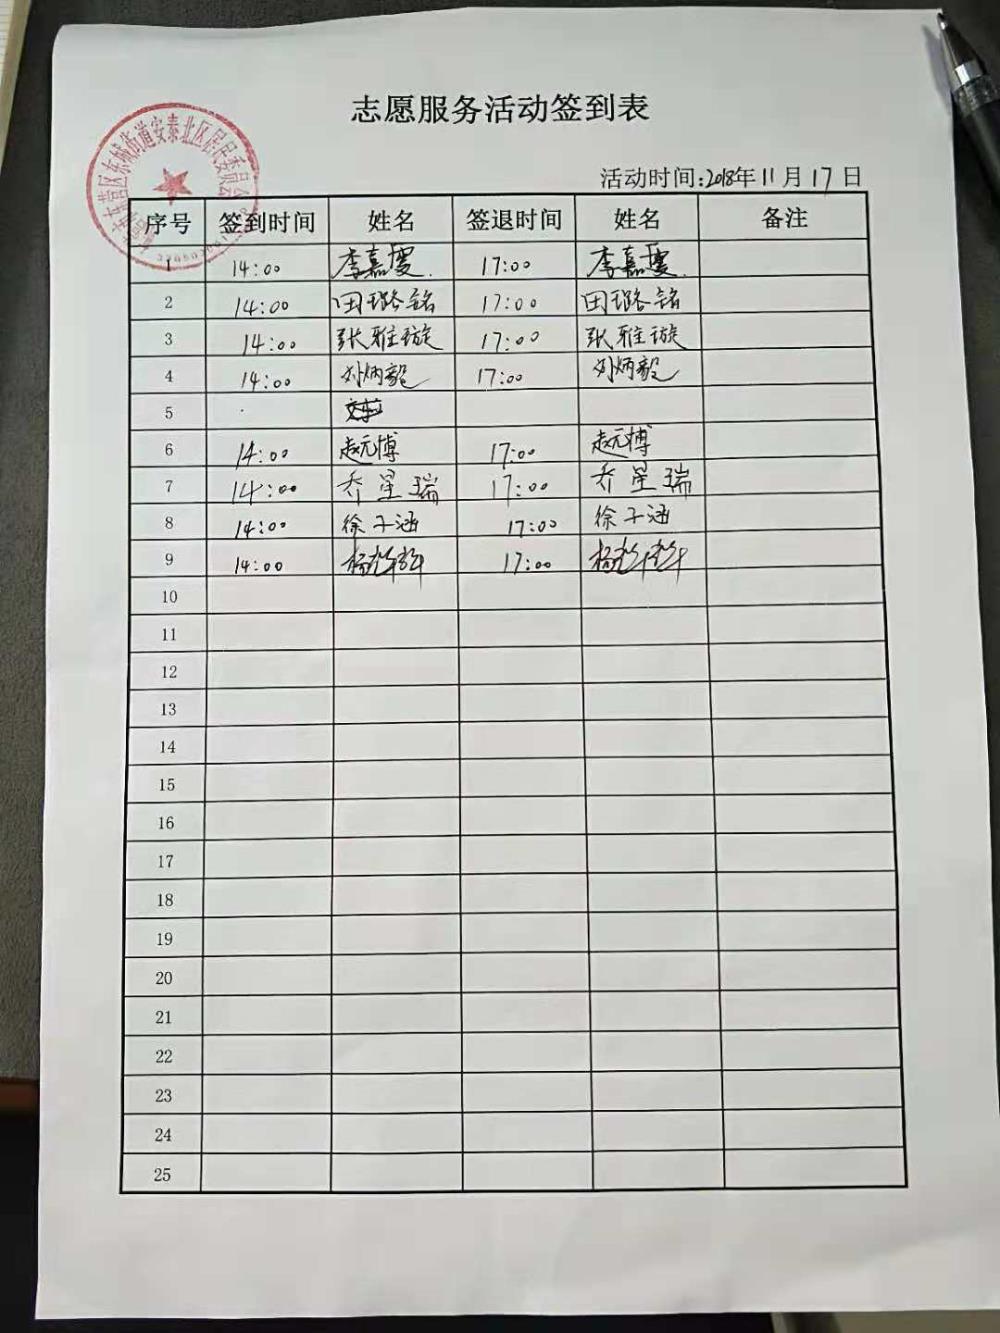 志愿服务活动签到表
东营区东城街道安泰北区居民委员会
活动时间:2018年11月17日
序号 签到时间 姓名 签退时间 姓名 备注
1 14:00 李嘉雯 17:00 李嘉雯
2 14:00 田璐铭 17:00 田璐铭
3 14:00 张雅璇 17:00 张雅璇
4 14:00 刘炳毅 17:00 刘炳毅
5
6 14:00 赵元博 17:00 赵元博
7 14:00 乔星瑞 17:00 乔星瑞
8 14:00 徐子涵 17:00 徐子涵
9 14:00 17:00
10
11
12
13
14
15
16
17
18
19
20
21
22
23
24
25